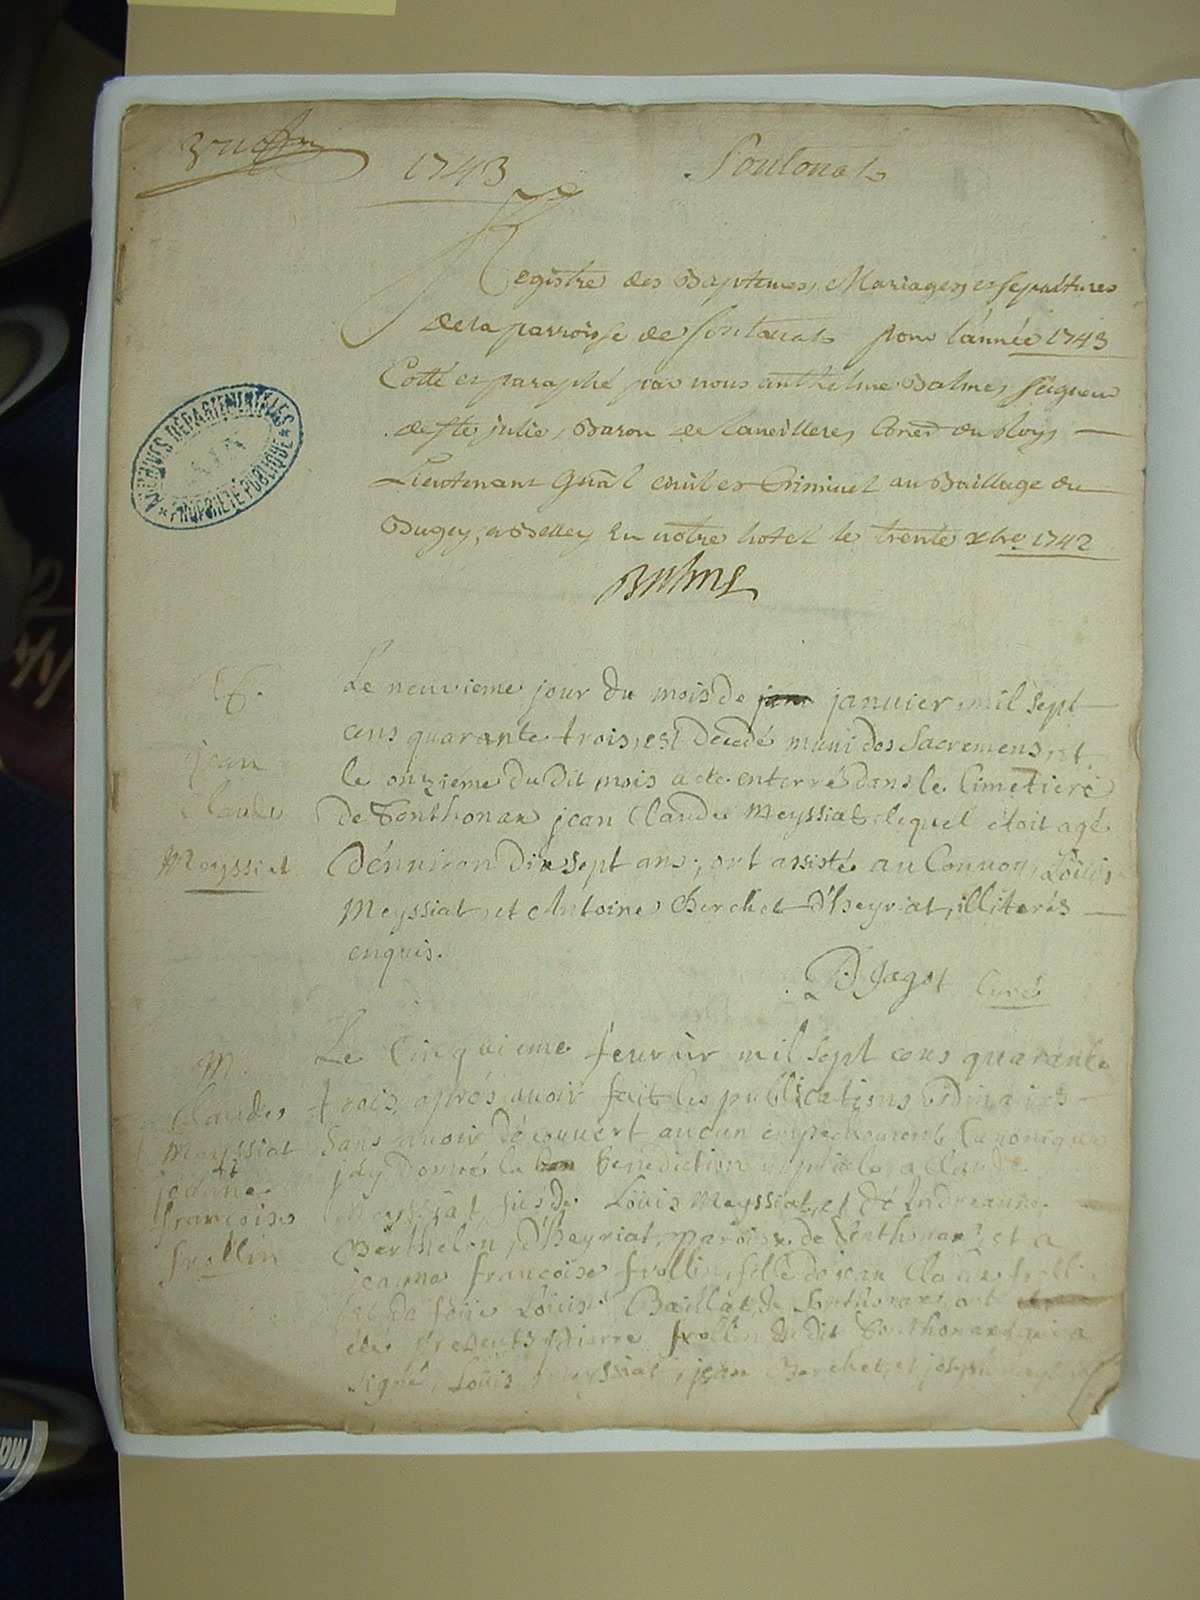 1743
Registre des Baptemes, Mariages, et Sepultures
de la parroisse de fontanat pour l'année 1743
Cotté et paraphé par nous anthelme Balme, seigneur
de ste julie, Baron de Conseil du Roy
Lieutenant Gnãl civil et Criminel au Bailliage du
Bugey, a Belley En notre hotel le trente xbre 1742
Balme
ARCHIVES DEPARTEMENTALES
AIN
PROPRIÉTÉ PUBLIQUE
S.
jean
Claude
Meyssiat
Le neuvieme jour du mois de janvier mil sept
cens quarante trois, est decedé muni des Sacremens, et
le onzieme du dit mois a eté enterré dans le Cimetiere
de Fonthonax jean Claude Meyssiat lequel étoit agé
d'environ dix sept ans; ont assisté au Convoy, Loüis
Meyssiat, et Antoine Berchet d'heyriat, illiterés
enquis.
Jagot Curé
M.
Claude
Meyssiat
jeanne
françoise
frollin
Le Cinquieme fevrier mil sept cens quarante
trois, aprés avoir fait les publications ordinaires
sans avoir découvert aucun empechement Canonique
j'ay donné la benediction nuptiale a Claude
Meyssiat fils de Loüis Meyssiat, et d'Andreanne
Berthelon, d'heyriat, paroisse de Fonthonax, et a
jeanne françoise frollin, fille de jean Claude frollin
et de Loüise Baillat, de Fonthonax, ont
été presents Pierre frollin du dit Fonthonax qui a
signé, Loüis Meyssiat, jean Berchet, et joseph